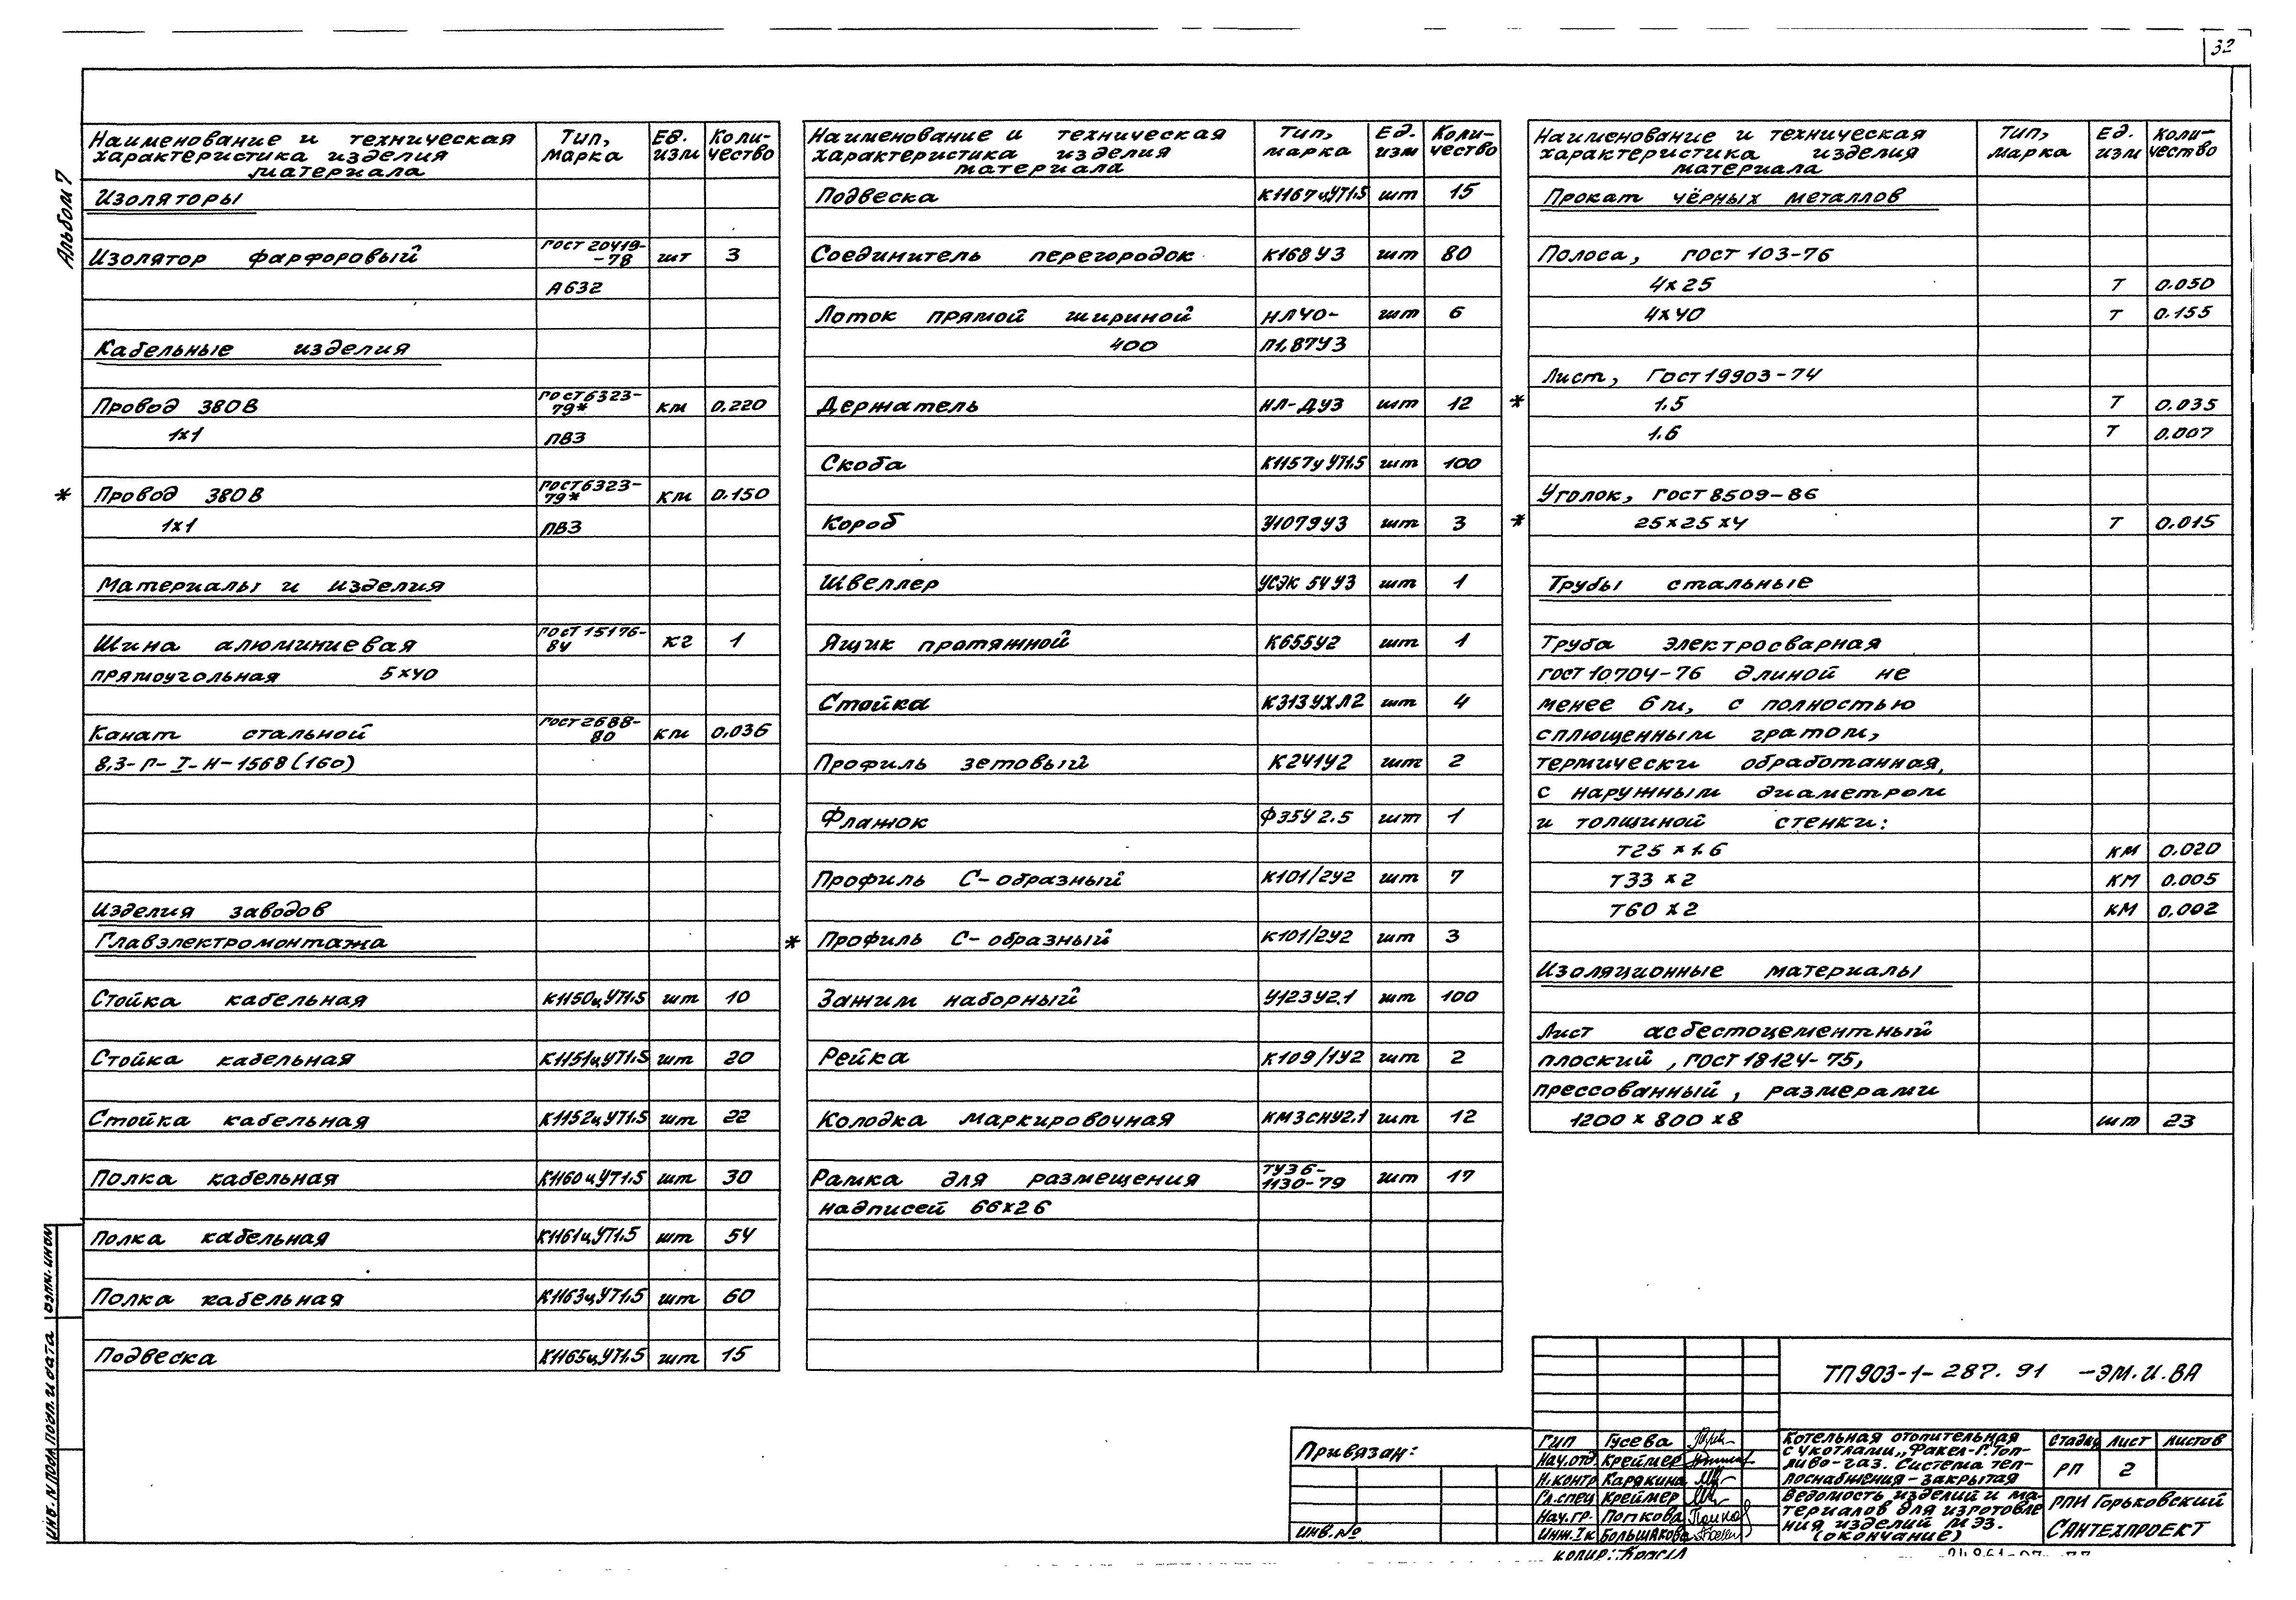 32
Альбом 7
Наименование и техническая характеристика изделия материала | Тип, марка | Ед. изм | Коли-чество
Изоляторы
Изолятор фарфоровый | ГОСТ 20419-78 | шт | 3
А632
Кабельные изделия
Провод 380В | ГОСТ 6323-79* | км | 0.220
1х1 | ПВ3
* Провод 380В | ГОСТ 6323-79* | км | 0.150
1х1 | ПВ3
Материалы и изделия
Шина алюминиевая | ГОСТ 15176-84 | кг | 1
прямоугольная 5х40
Канат стальной | ГОСТ 2688-80 | км | 0,036
8,3-Г-I-Н-1568(160)
Изделия заводов
Главэлектромонтажа
Стойка кабельная | К1150цУТ1.5 | шт | 10
Стойка кабельная | К1151цУТ1.5 | шт | 20
Стойка кабельная | К1152цУТ1.5 | шт | 22
Полка кабельная | К1160цУТ1.5 | шт | 30
Полка кабельная | К1161цУТ1.5 | шт | 54
Полка кабельная | К1163цУТ1.5 | шт | 60
Подвеска | К1165цУТ1.5 | шт | 15
Наименование и техническая характеристика изделия материала | Тип, марка | Ед. изм | Коли-чество
Подвеска | К1167цУТ1.5 | шт | 15
Соединитель перегородок | К168У3 | шт | 80
Лоток прямой шириной | НЛ40- | шт | 6
400 | П1.87У3
Держатель | НЛ-ДУ3 | шт | 12
Скоба | К1157уУТ1.5 | шт | 100
Короб | У1079У3 | шт | 3
Швеллер | УСЭК 54У3 | шт | 1
Ящик протяжной | К655У2 | шт | 1
Стойка | К313УХЛ2 | шт | 4
Профиль зетовый | К241У2 | шт | 2
Флажок | Ф35У2.5 | шт | 1
Профиль С-образный | К101/2У2 | шт | 7
* Профиль С-образный | К101/2У2 | шт | 3
Зажим наборный | У123У2.1 | шт | 100
Рейка | К109/1У2 | шт | 2
Колодка маркировочная | КМ3СНУ2.1 | шт | 12
Рамка для размещения | ТУ36-1130-79 | шт | 17
надписей 66х26
Наименование и техническая характеристика изделия материала | Тип, марка | Ед. изм | Коли-чество
Прокат чёрных металлов
Полоса, ГОСТ 103-76
4х25 | Т | 0.050
4х40 | Т | 0.155
Лист, ГОСТ 19903-74
* 1.5 | Т | 0.035
1.6 | Т | 0.007
Уголок, ГОСТ 8509-86
* 25х25х4 | Т | 0.015
Трубы стальные
Труба электросварная
ГОСТ 10704-76 длиной не
менее 6м, с полностью
сплющенным гратом,
термически обработанная,
с наружным диаметром
и толщиной стенки:
Т25х1.6 | КМ | 0.020
Т33х2 | КМ | 0.005
Т60х2 | КМ | 0.002
Изоляционные материалы
Лист асбестоцементный
плоский, ГОСТ 18124-75,
прессованный, размерами
1200х800х8 | шт | 23
ТП 903-1-287.91 -ЭМ.И.ВА
Привязан:
инв.№
ГИП Гусева
Нач.отд Креймер
Н.контр Карякина
Гл.спец Креймер
Нач.гр. Попкова
Инж.Iк Большакова
Котельная отопительная
с 4 котлами „Факел-Г. Топ-
ливо-газ. Система теп-
лоснабжения-закрытая
Ведомость изделий и ма-
териалов для изготовле
ния изделий МЭЗ.
(окончание)
Стадия Лист Листов
РП 2
РПИ Горьковский
САНТЕХПРОЕКТ
Инв.№подл Подп. и дата Взам.инв№
копир: